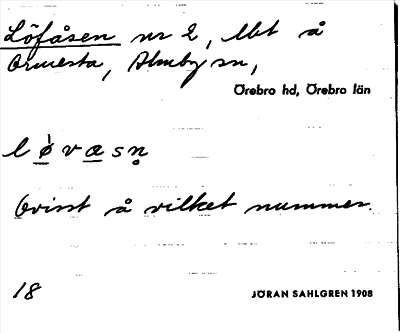 Löfåsen nr 2, lht å
Ormesta, Almby sn,
Örebro hd, Örebro län
lø̀vasn̥
Ovisst å vilket nummer.
18
JÖRAN SAHLGREN 1908